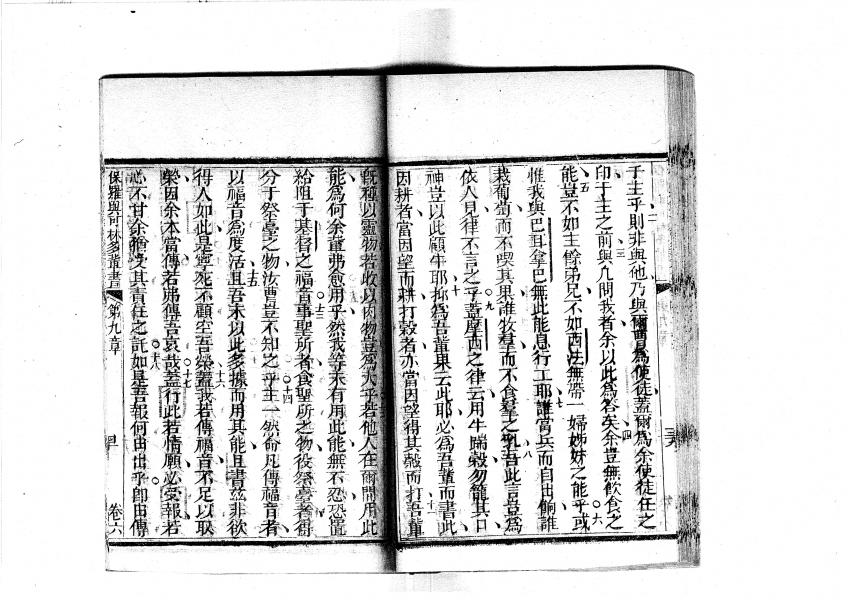 子主乎則非與他乃與爾曹爲使徒蓋爾爲余使徒任之
印于主之前與凡問我者余以此爲答矣余豈無飲食之
能豈不如主餘弟兄不如西法無帶一婦姊妹之能乎或
惟我與巴耳拿巴無此能息行工耶誰當兵而自出餉誰
栽葡萄而不喫其果誰牧羣而不食羣之乳吾此言豈爲
依人見律不言之乎蓋摩西之律云用牛踹穀勿籠其口
神豈以此顧牛耶抑爲吾輩果云此耶必爲吾輩而書此
因耕者當因望而耕打穀者亦當因望得其穀而打吾輩
旣種以靈物若收以肉物豈爲大乎若他人在爾間用此
能爲何余輩弗愈用乎然我等未有用此能無不忍恐置
給阻于基督之福音事聖所者食聖所之物役祭臺者得
分于祭臺之物汝曹豈不知之乎主一然命凡傳福音者
以福音爲度活且吾未以此多據而用其能且書茲非欲
得人如此是寧死不顧空吾榮蓋我若傳福音不足以取
榮因余本當傳若弗傳吾哀哉蓋行此若情願必受報若
心不甘余膽受其責任之託如是吾報何由出乎卽由傳
保羅與可林多輩書 第九章 卷六